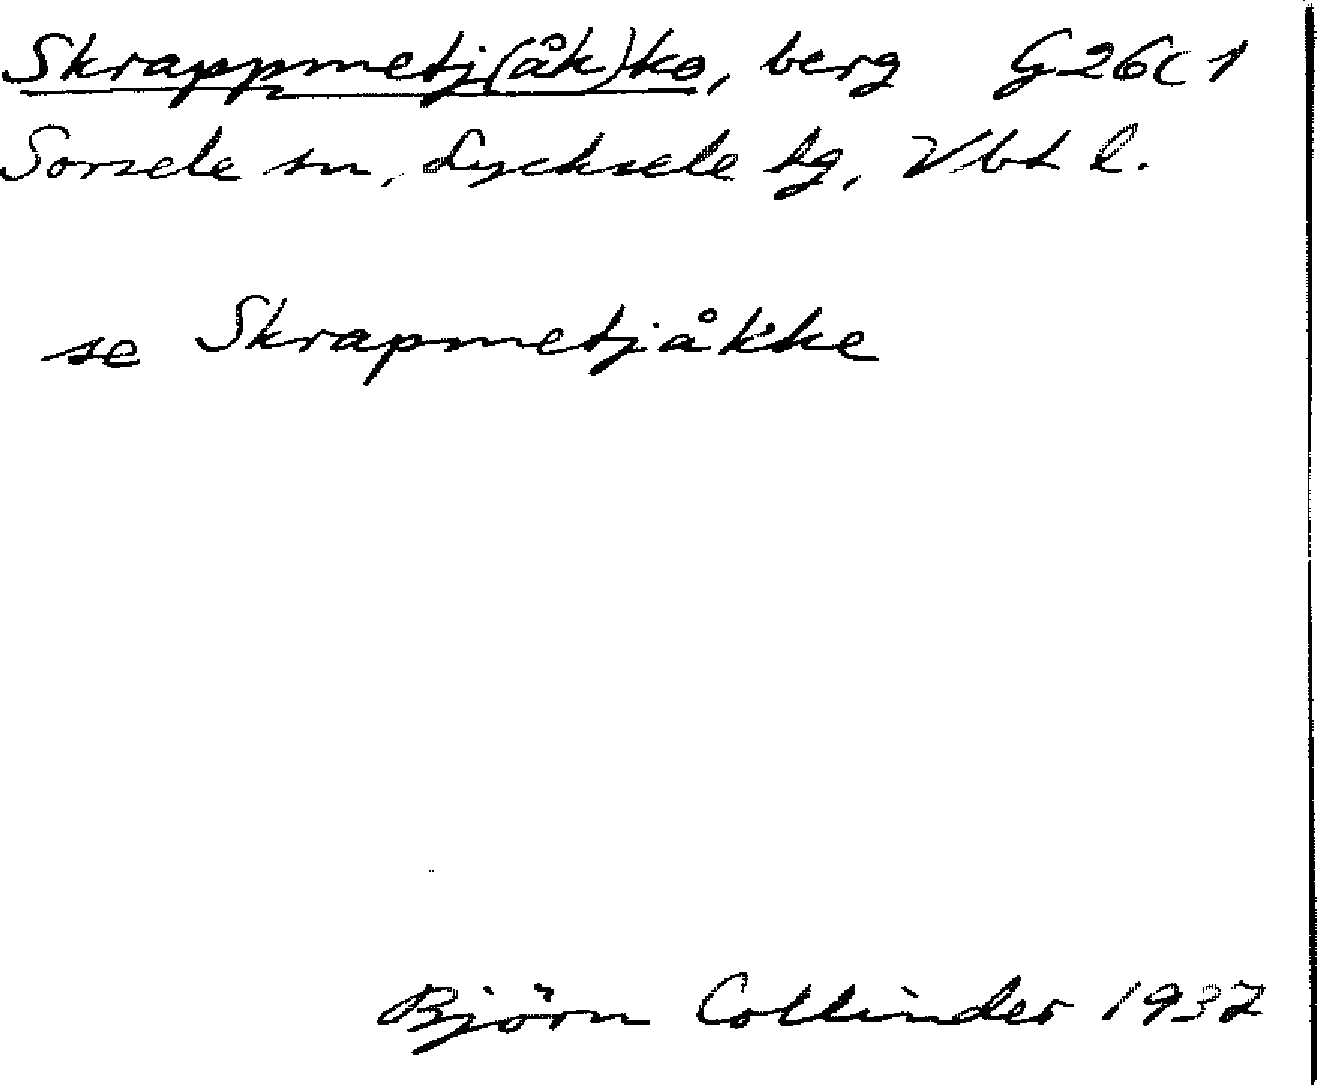 Skrappmetj(åk)ko, berg G26C1
Sorsele sn, Lycksele lg, Vbt l.
se Skrapmetjåkke
Björn Collinder 1937